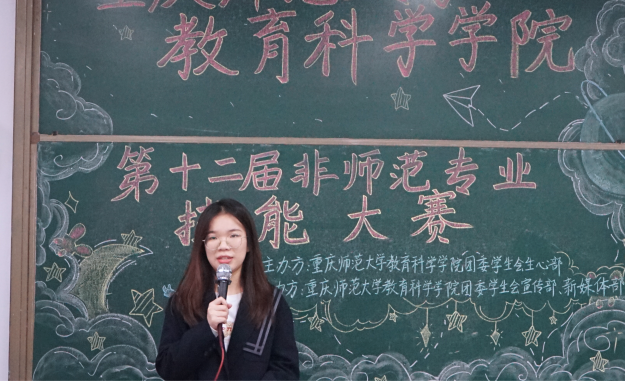 教育科学学院
第十二届非师范专业
技能大赛
主办方:重庆师范大学教育科学学院团委学生会生心部
办方:重庆师范大学教育科学学院团委学生会宣传部、新媒体部